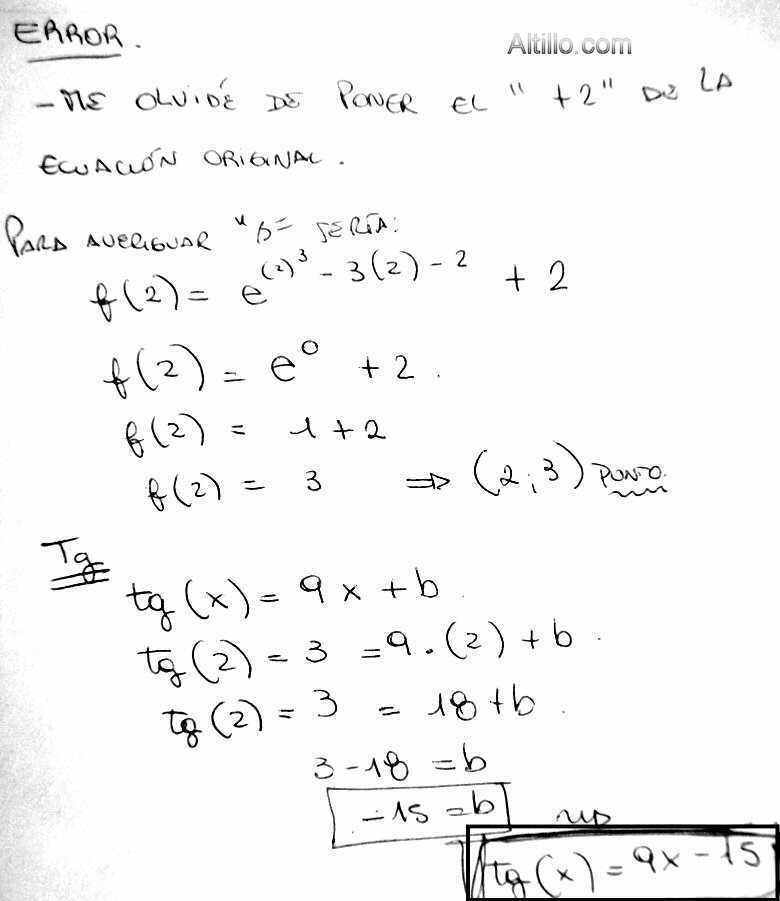 ERROR.
Altillo.com
- ME OLVIDÉ DE PONER EL "+2" DE LA
ECUACIÓN ORIGINAL.
PARA AVERIGUAR "b= SERÍA:
f(2) = e^(2)^3 - 3(2) - 2 + 2
f(2) = e^0 + 2.
f(2) = 1 + 2
f(2) = 3 ⇒ (2;3) PUNTO.
Tg
tg(x) = 9x + b
tg(2) = 3 = 9.(2) + b.
tg(2) = 3 = 18 + b.
3 - 18 = b
-15 = b
tg(x) = 9x - 15